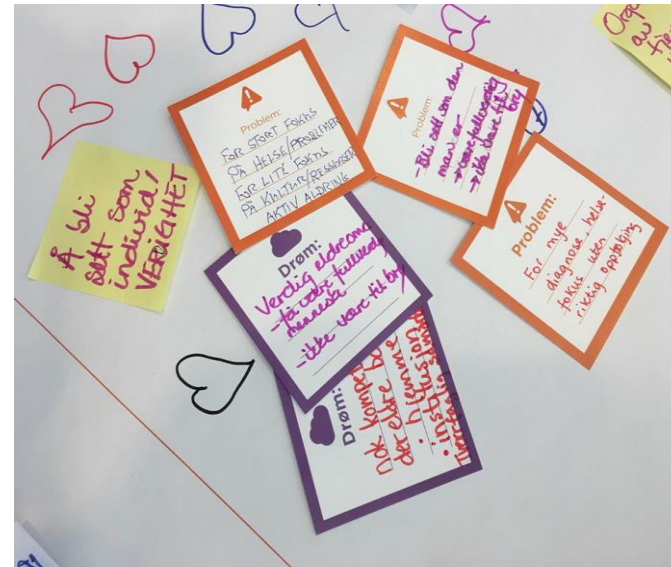 Å bli
sett som
individ/
VERDIGHET
Problem:
FOR STORT FOKUS
PÅ HELSE/PROBLEMER
FOR LITE FOKUS
PÅ KULTUR/RESSURSER
AKTIV ALDRING
Problem:
-Bli sett som den
man er
Problem:
For mye
diagnose, helse-
fokus uten
riktig oppfølging
Drøm:
Verdig eldreoms
-få være fullverdig
menneske
-ikke være til bry
Drøm:
Nok kompet
der eldre bo
• hjemme
• institusjon
av